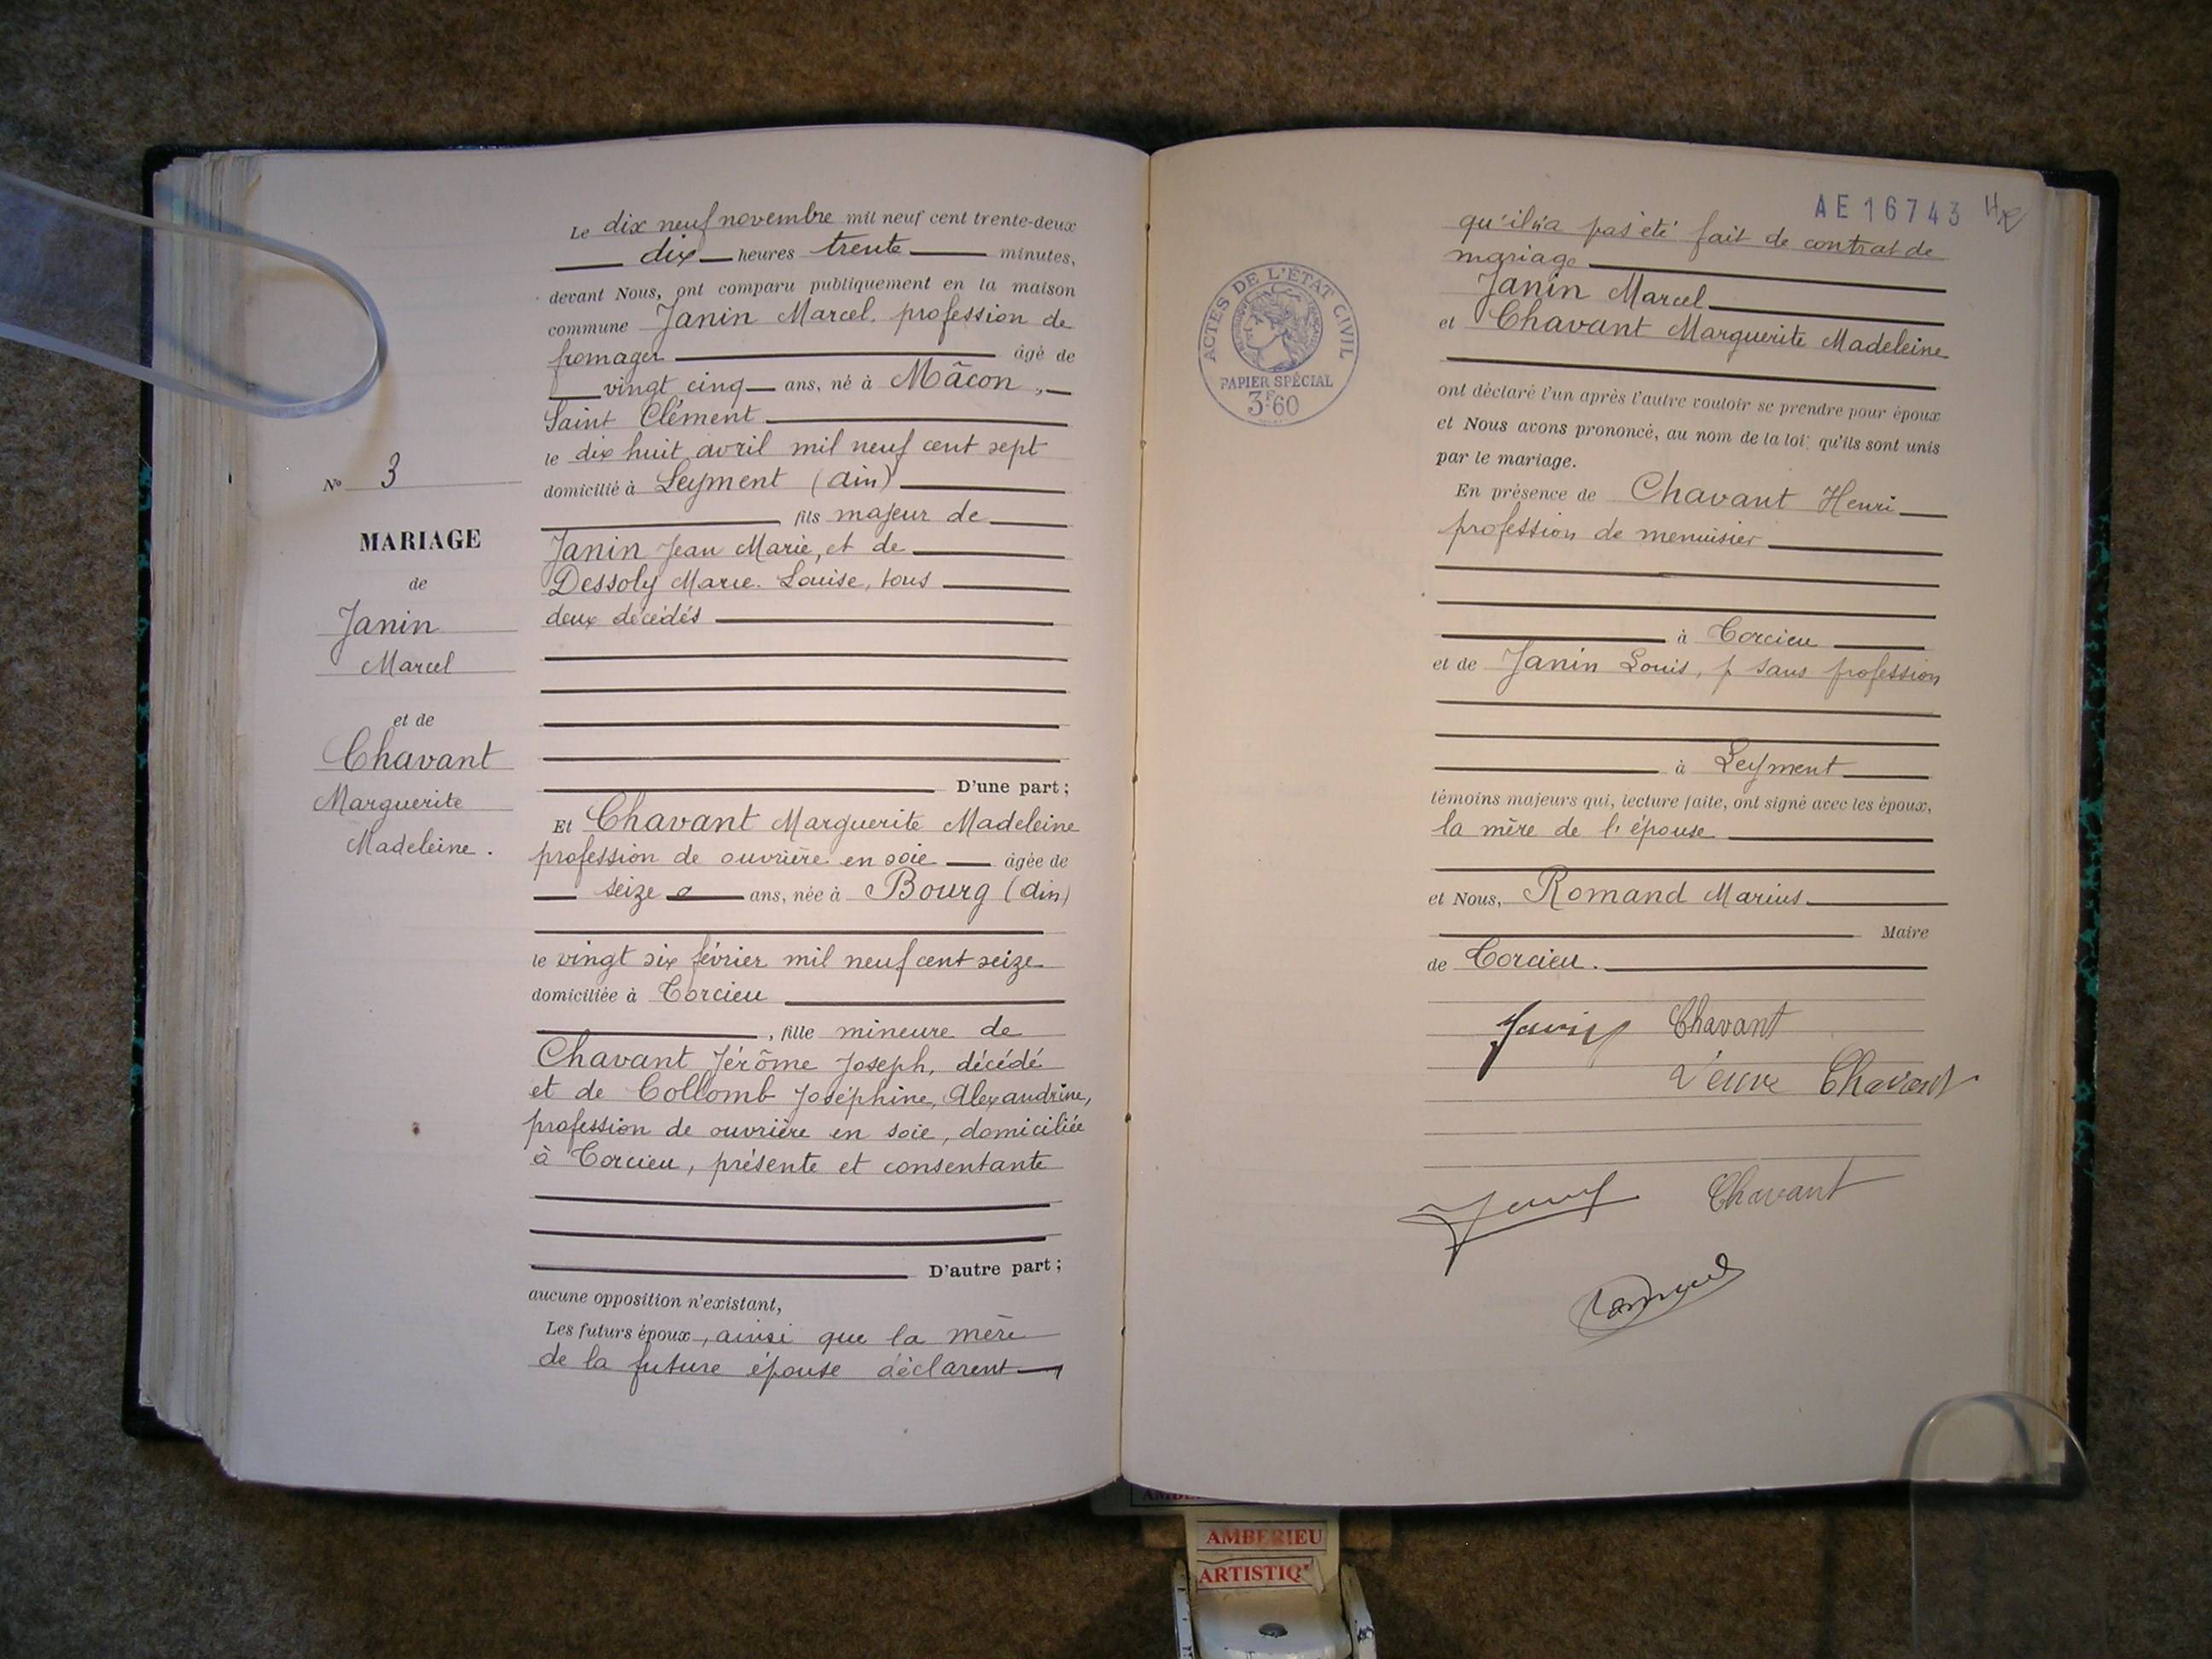 Le dix neuf novembre mil neuf cent trente-deux
dix heures trente minutes,
devant Nous, ont comparu publiquement en la maison
commune Janin Marcel. profession de
fromager âgé de
vingt cinq ans, né à Mâcon,
Saint Clément
le dix huit avril mil neuf cent sept
domicilié à Leyment (Ain)
fils majeur de
Janin Jean Marie, et de
Dessoly Marie. Louise, tous
deux décédés
D'une part;
Et Chavant Marguerite Madeleine
profession de ouvrière en soie âgée de
seize ans, née à Bourg (Ain)
le vingt six février mil neuf cent seize
domiciliée à Torcieu
, fille mineure de
Chavant Jérôme Joseph, décédé
et de Collomb Joséphine, Alexandrine,
profession de ouvrière en soie, domiciliée
à Torcieu, présente et consentante
D'autre part;
aucune opposition n'existant,
Les futurs époux, ainsi que la mère
de la future épouse déclarent
N° 3
MARIAGE
de
Janin
Marcel
et de
Chavant
Marguerite
Madeleine.
AE16743
qu'il n'a pas été fait de contrat de
mariage
Janin Marcel
et Chavant Marguerite Madeleine
ont déclaré l'un après l'autre vouloir se prendre pour époux
et Nous avons prononcé, au nom de la loi, qu'ils sont unis
par le mariage.
En présence de Chavant Henri
profession de menuisier
à Torcieu
et de Janin Louis, sans profession
à Leyment
témoins majeurs qui, lecture faite, ont signé avec les époux,
la mère de l'épouse
et Nous, Romand Marius
Maire
de Torcieu.
Janin Chavant
Veuve Chavant
Chavant
ACTES DE L'ÉTAT CIVIL
PAPIER SPÉCIAL
3F60
AMBERIEU
ARTISTIQ